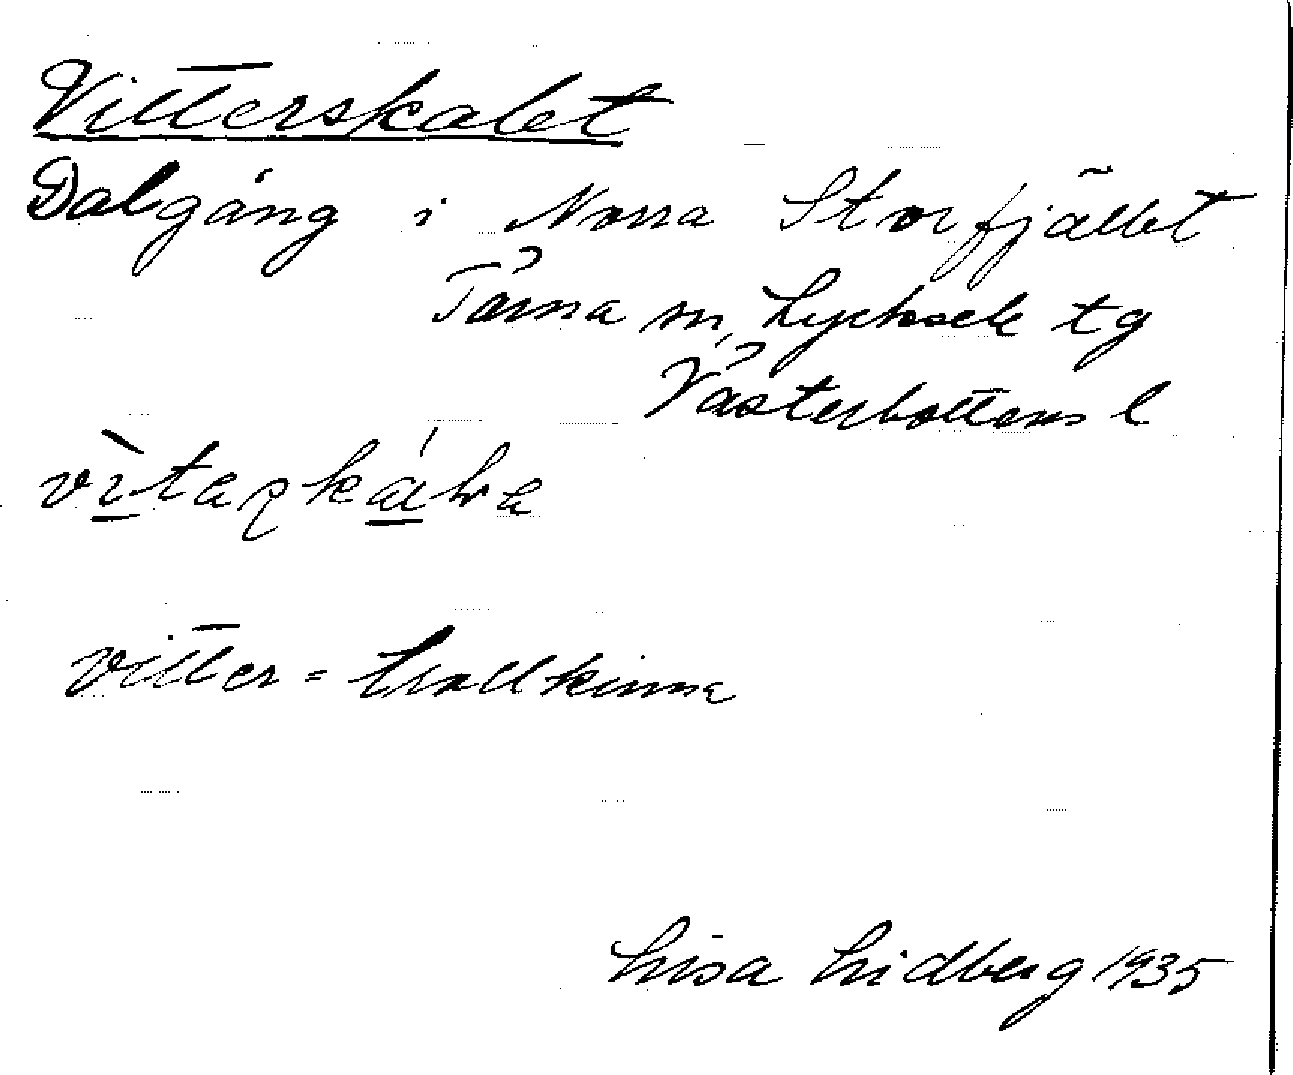 Vitterskalet
Dalgång i Norra Storfjället
Tärna sn, Lycksele tg
Västerbottens l
vitter = trollkvinna
Lisa Lidberg 1935